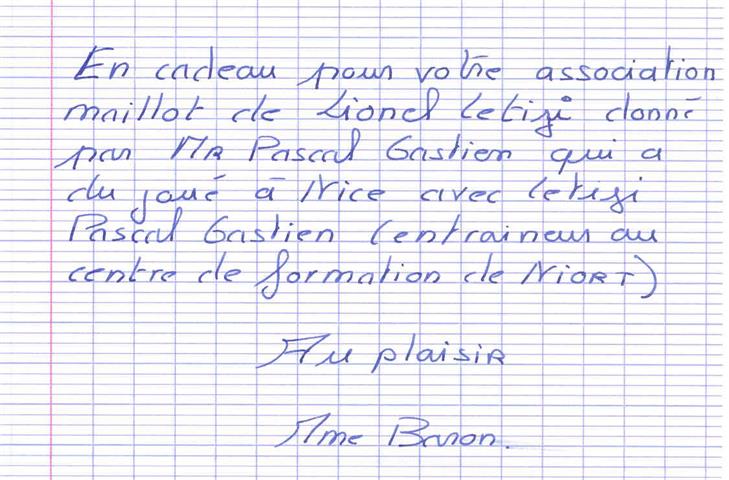 En cadeau pour votre association
maillot de Lionel Letizi donné
par MR Pascal Gastien qui a
du joué à Nice avec Letizi
Pascal Gastien (entraineur au
centre de formation de NIORT)
Au plaisir
Mme Baron.